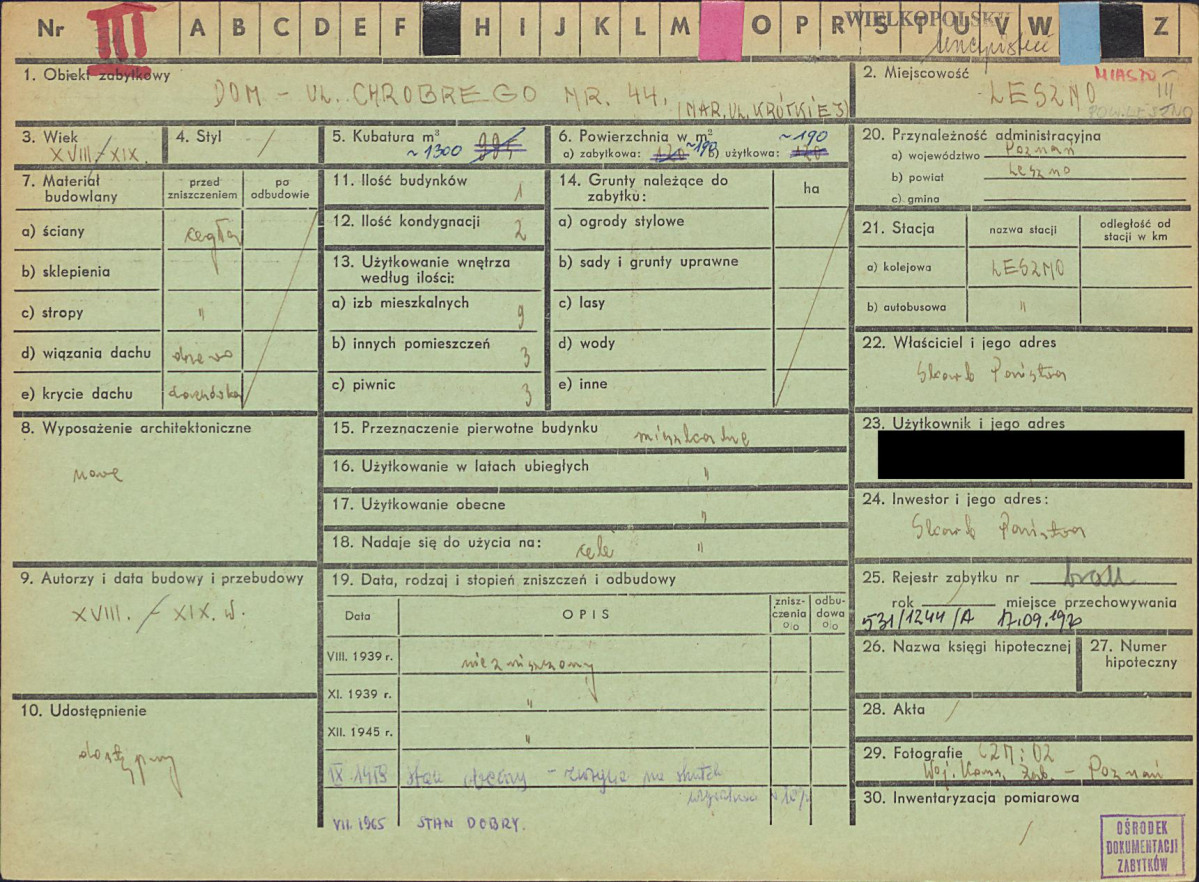 Nr III A B C D E F H I J K L M O P R S T U V W Z
WIELKOPOLSKI
1. Obiekt zabytkowy
DOM – UL. CHROBREGO NR. 44. (NAR. UL. KRÓTKIEJ)
2. Miejscowość
MIASTO III
LESZNO
POW. LESZNO
3. Wiek
XVIII/XIX.
4. Styl
/
5. Kubatura m³
~ 1300
6. Powierzchnia w m²
a) zabytkowa: ~190 b) użytkowa: ~190
7. Materiał budowlany
przed zniszczeniem
po odbudowie
a) ściany cegła
b) sklepienia
c) stropy "
d) wiązania dachu drewno
e) krycie dachu dachówka
8. Wyposażenie architektoniczne
nowe
9. Autorzy i data budowy i przebudowy
XVIII. / XIX. w.
10. Udostępnienie
dostępny
11. Ilość budynków 1
12. Ilość kondygnacji 2
13. Użytkowanie wnętrza według ilości:
a) izb mieszkalnych 9
b) innych pomieszczeń 3
c) piwnic 3
14. Grunty należące do zabytku:
ha
a) ogrody stylowe
b) sady i grunty uprawne
c) lasy
d) wody
e) inne
15. Przeznaczenie pierwotne budynku mieszkalne
16. Użytkowanie w latach ubiegłych "
17. Użytkowanie obecne "
18. Nadaje się do użycia na: cele "
19. Data, rodzaj i stopień zniszczeń i odbudowy
Data
OPIS
zniszczenia o/o
odbudowa o/o
VIII. 1939 r. niezniszczony
XI. 1939 r. "
XII. 1945 r. "
VII. 1965 STAN DOBRY.
20. Przynależność administracyjna
a) województwo Poznań
b) powiat Leszno
c) gmina
21. Stacja
nazwa stacji
odległość od stacji w km
a) kolejowa LESZNO
b) autobusowa "
22. Właściciel i jego adres
Skarb Państwa
23. Użytkownik i jego adres
24. Inwestor i jego adres:
Skarb Państwa
25. Rejestr zabytku nr brak
rok / miejsce przechowywania
531/1244/A 17.09.1970
26. Nazwa księgi hipotecznej
27. Numer hipoteczny
28. Akta /
29. Fotografie
Woj. Kons. Zab. – Poznań
30. Inwentaryzacja pomiarowa
/
OŚRODEK
DOKUMENTACJI
ZABYTKÓW